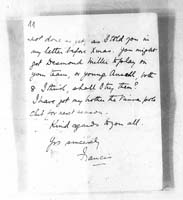 11
not done as yet, as I told you in
my letter before Xmas. You might
get Desmond Miller to play on
your team, or young Ansell, both
8 I think, shall I try them?
I have got my brother the
club for next season.
Kind regards to you all.
Yrs sincerely
Francis